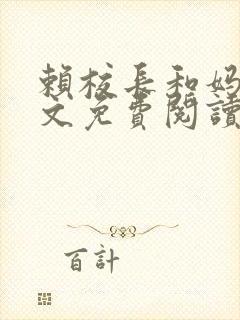 賴校長和妈
文免費閱讀
百計